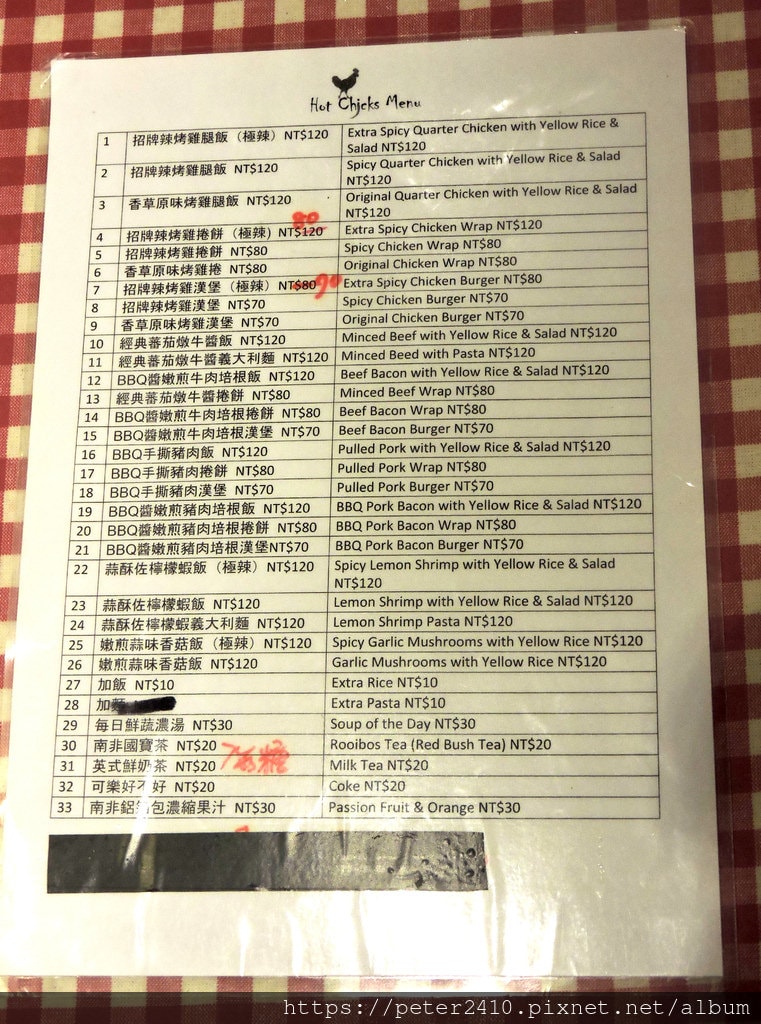 Hot Chjcks Menu
1 招牌辣烤雞腿飯（極辣）NT$120 Extra Spicy Quarter Chicken with Yellow Rice &
Salad NT$120
2 招牌辣烤雞腿飯 NT$120 Spicy Quarter Chicken with Yellow Rice & Salad
NT$120
3 香草原味烤雞腿飯 NT$120 Original Quarter Chicken with Yellow Rice & Salad
NT$120
80
4 招牌辣烤雞捲餅（極辣）NT$120 Extra Spicy Chicken Wrap NT$120
5 招牌辣烤雞捲餅 NT$80 Spicy Chicken Wrap NT$80
6 香草原味烤雞捲 NT$80 Original Chicken Wrap NT$80
7 招牌辣烤雞漢堡（極辣）NT$80 90 Extra Spicy Chicken Burger NT$80
8 招牌辣烤雞漢堡 NT$70 Spicy Chicken Burger NT$70
9 香草原味烤雞漢堡 NT$70 Original Chicken Burger NT$70
10 經典蕃茄燉牛醬飯 NT$120 Minced Beef with Yellow Rice & Salad NT$120
11 經典蕃茄燉牛醬義大利麵 NT$120 Minced Beed with Pasta NT$120
12 BBQ醬嫩煎牛肉培根飯 NT$120 Beef Bacon with Yellow Rice & Salad NT$120
13 經典蕃茄燉牛醬捲餅 NT$80 Minced Beef Wrap NT$80
14 BBQ醬嫩煎牛肉培根捲餅 NT$80 Beef Bacon Wrap NT$80
15 BBQ醬嫩煎牛肉培根漢堡 NT$70 Beef Bacon Burger NT$70
16 BBQ手撕豬肉飯 NT$120 Pulled Pork with Yellow Rice & Salad NT$120
17 BBQ手撕豬肉捲餅 NT$80 Pulled Pork Wrap NT$80
18 BBQ手撕豬肉漢堡 NT$70 Pulled Pork Burger NT$70
19 BBQ醬嫩煎豬肉培根飯 NT$120 BBQ Pork Bacon with Yellow Rice & Salad NT$120
20 BBQ醬嫩煎豬肉培根捲餅 NT$80 BBQ Pork Bacon Wrap NT$80
21 BBQ醬嫩煎豬肉培根漢堡NT$70 BBQ Pork Bacon Burger NT$70
22 蒜酥佐檸檬蝦飯（極辣）NT$120 Spicy Lemon Shrimp with Yellow Rice & Salad
NT$120
23 蒜酥佐檸檬蝦飯 NT$120 Lemon Shrimp with Yellow Rice & Salad NT$120
24 蒜酥佐檸檬蝦義大利麵 NT$120 Lemon Shrimp Pasta NT$120
25 嫩煎蒜味香菇飯（極辣）NT$120 Spicy Garlic Mushrooms with Yellow Rice NT$120
26 嫩煎蒜味香菇飯 NT$120 Garlic Mushrooms with Yellow Rice NT$120
27 加飯 NT$10 Extra Rice NT$10
28 加麵 Extra Pasta NT$10
29 每日鮮蔬濃湯 NT$30 Soup of the Day NT$30
30 南非國寶茶 NT$20 Rooibos Tea (Red Bush Tea) NT$20
31 英式鮮奶茶 NT$20 Milk Tea NT$20
32 可樂好不好 NT$20 Coke NT$20
33 南非鋁箔包濃縮果汁 NT$30 Passion Fruit & Orange NT$30
https://peter2410.pixnet.net/album